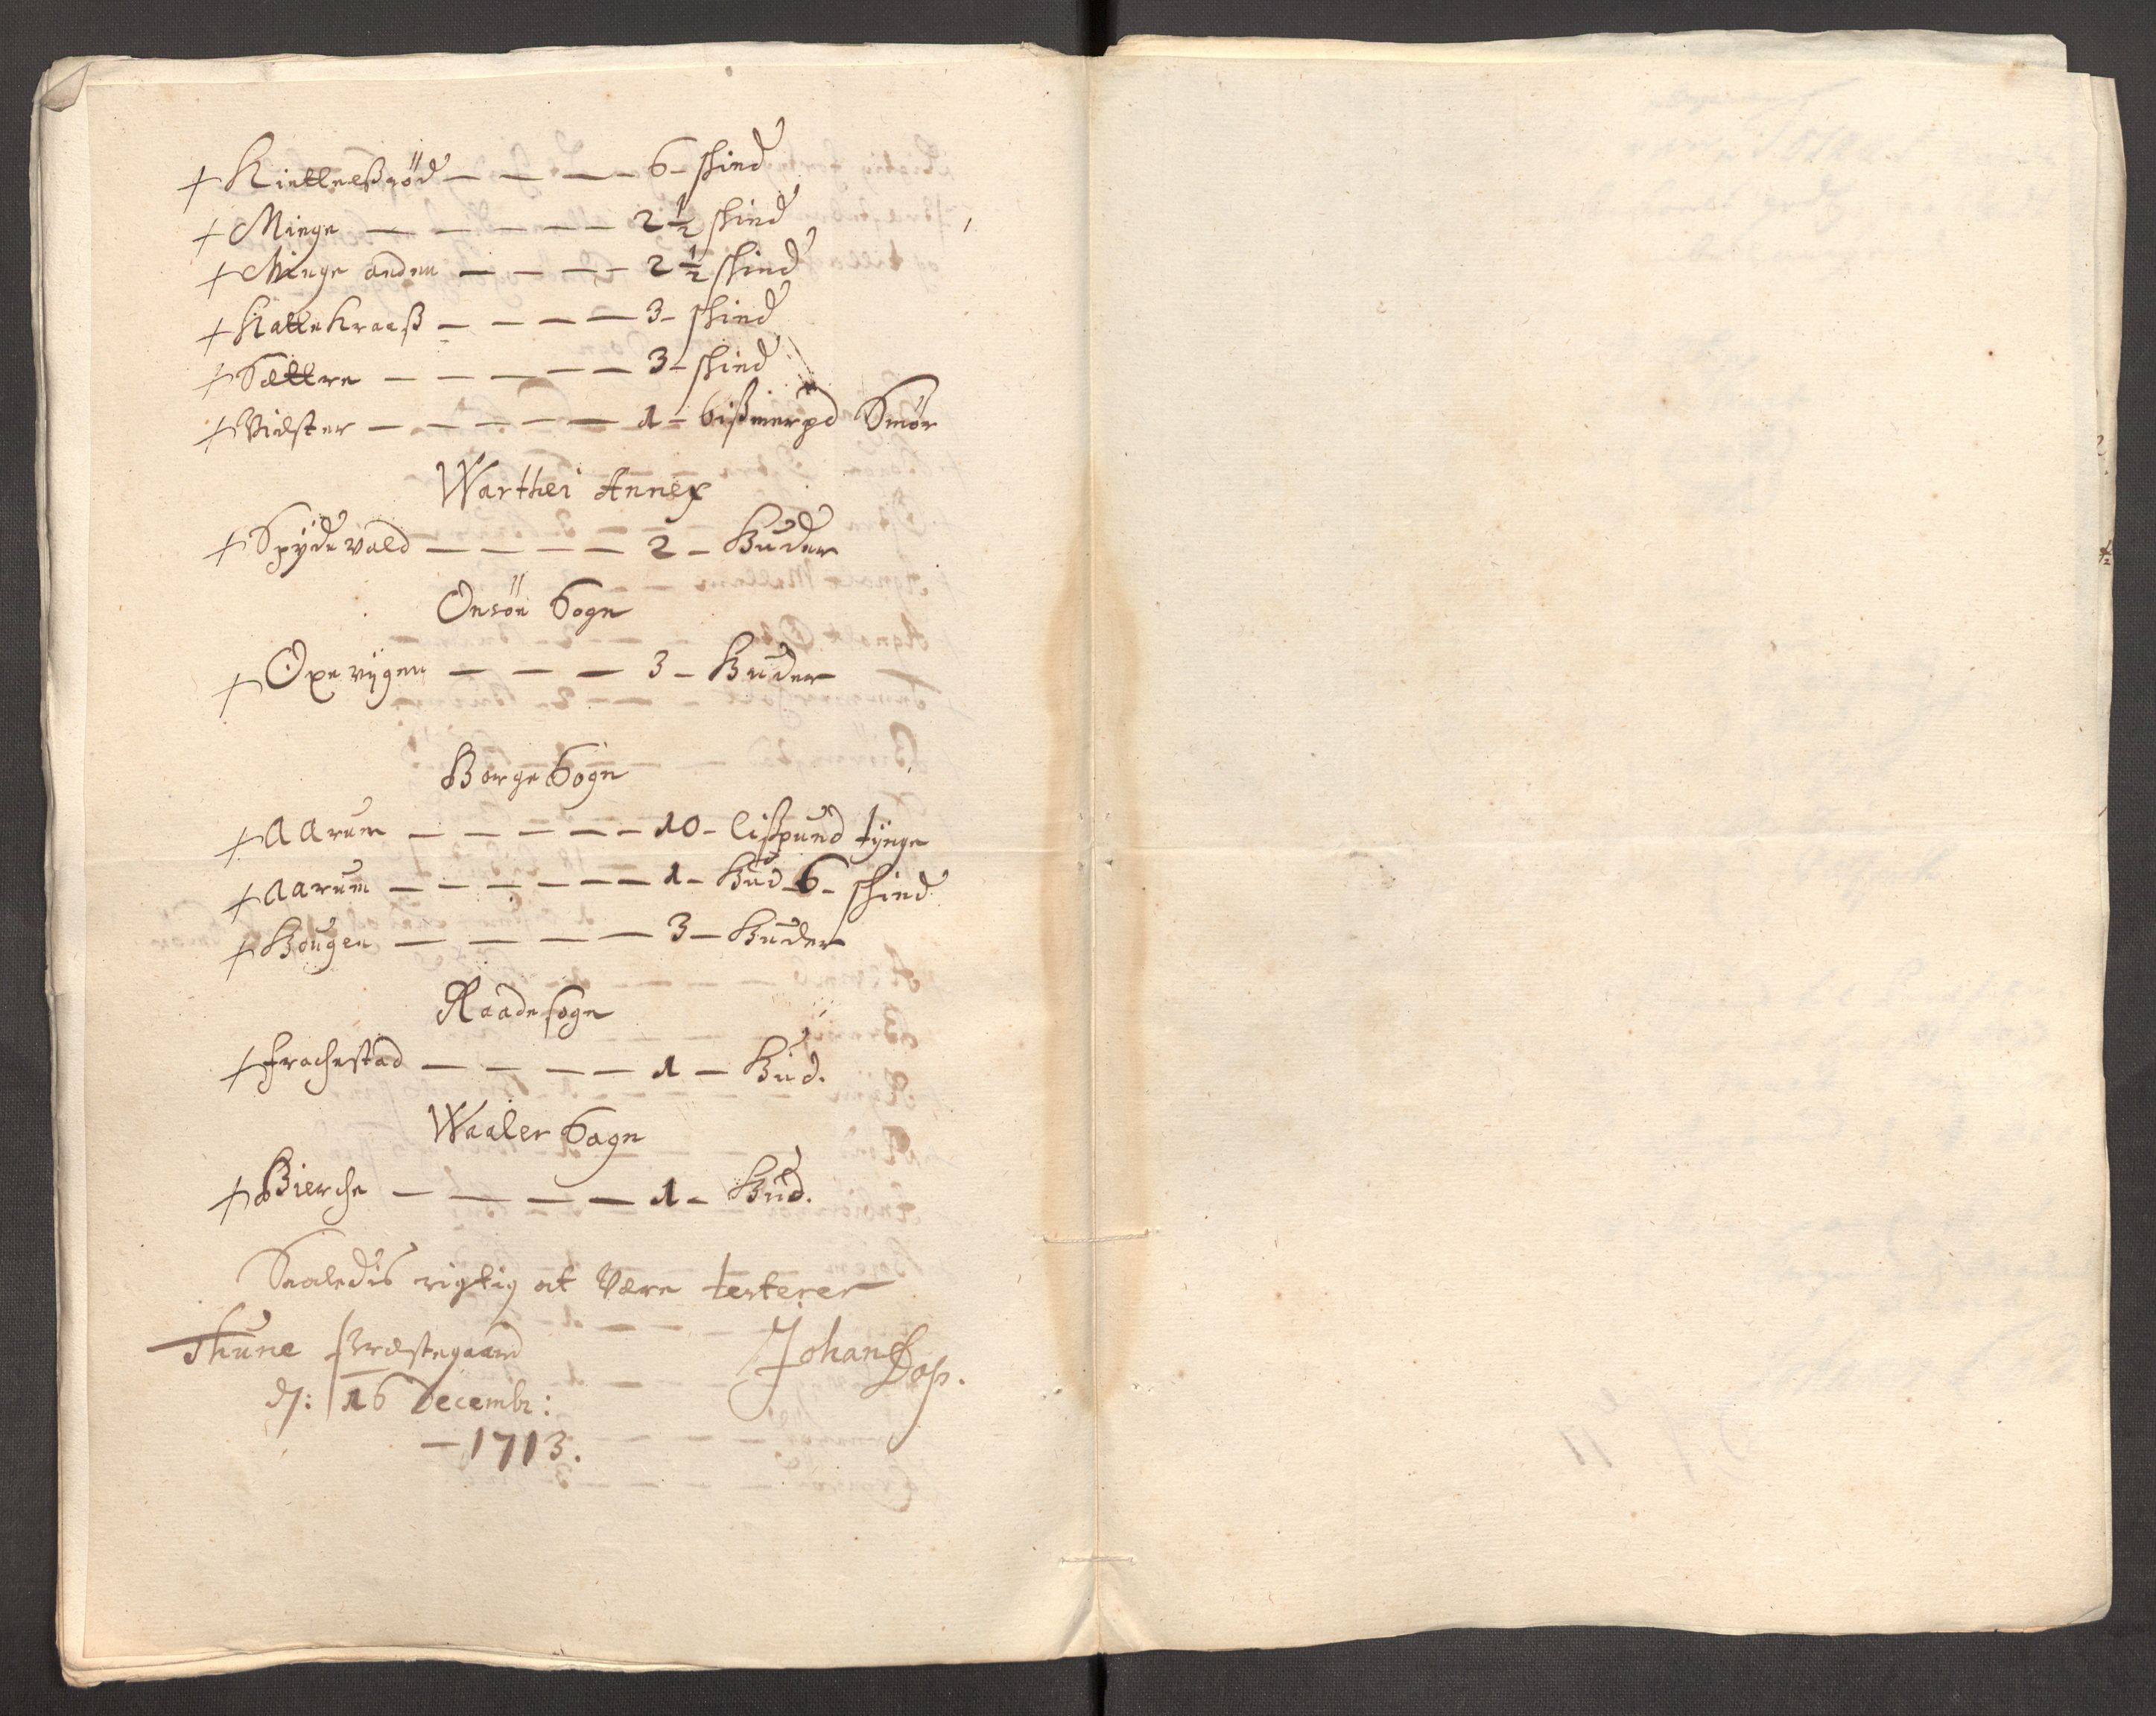 + Kietilßröd — — — — 6 - skind
+ Minge — — — — — 2 1/2 skind
+ Minge anden — — — — 2 1/2 skind
+ Kallekraaß — — — — 3 - skind
+ Sættre — — — — — 3 - skind
+ Vidster — — — — — 1 - bißmerpd Smör
Warthei Annex
+ Spÿdevold — — — — 2 - Huder
Onsöe Sogn
+ Oxevÿgen — — — 3 - Huder
Borge Sogn
+ Aarum — — — — — 10 - Lißpund tÿnge
+ Aarum — — — — — — 1 - Hud 6 - skind
+ Hougen — — — — — 3 - Huder
Raade sogn
+ frochestad — — — — 1 - Hud.
Waaler Sogn
+ Bierche — — — — — 1 - Hud.
Saaledis rigtig at Være testerer
Thune Præstegaard Johan Dop.
d: 16 Decembr:
— 1713.